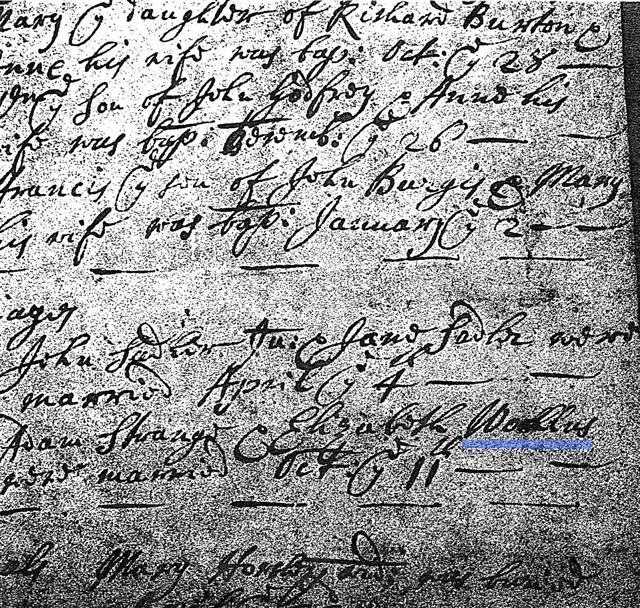 Mary ye daughter of Richard Burton &
Anne his wife was bap: Oct: ye 28
ye son of John Godfrey & Anne his
wife was bap: Decemb: ye 26
Francis ye son of John Burgis & Mary
his wife was bap: January ye 2
iages
John Sadler Jun: & Jane Sadler were
married April ye 4
Adam Strange & Elizabeth
were married Oct ye 11th
Mary was buried